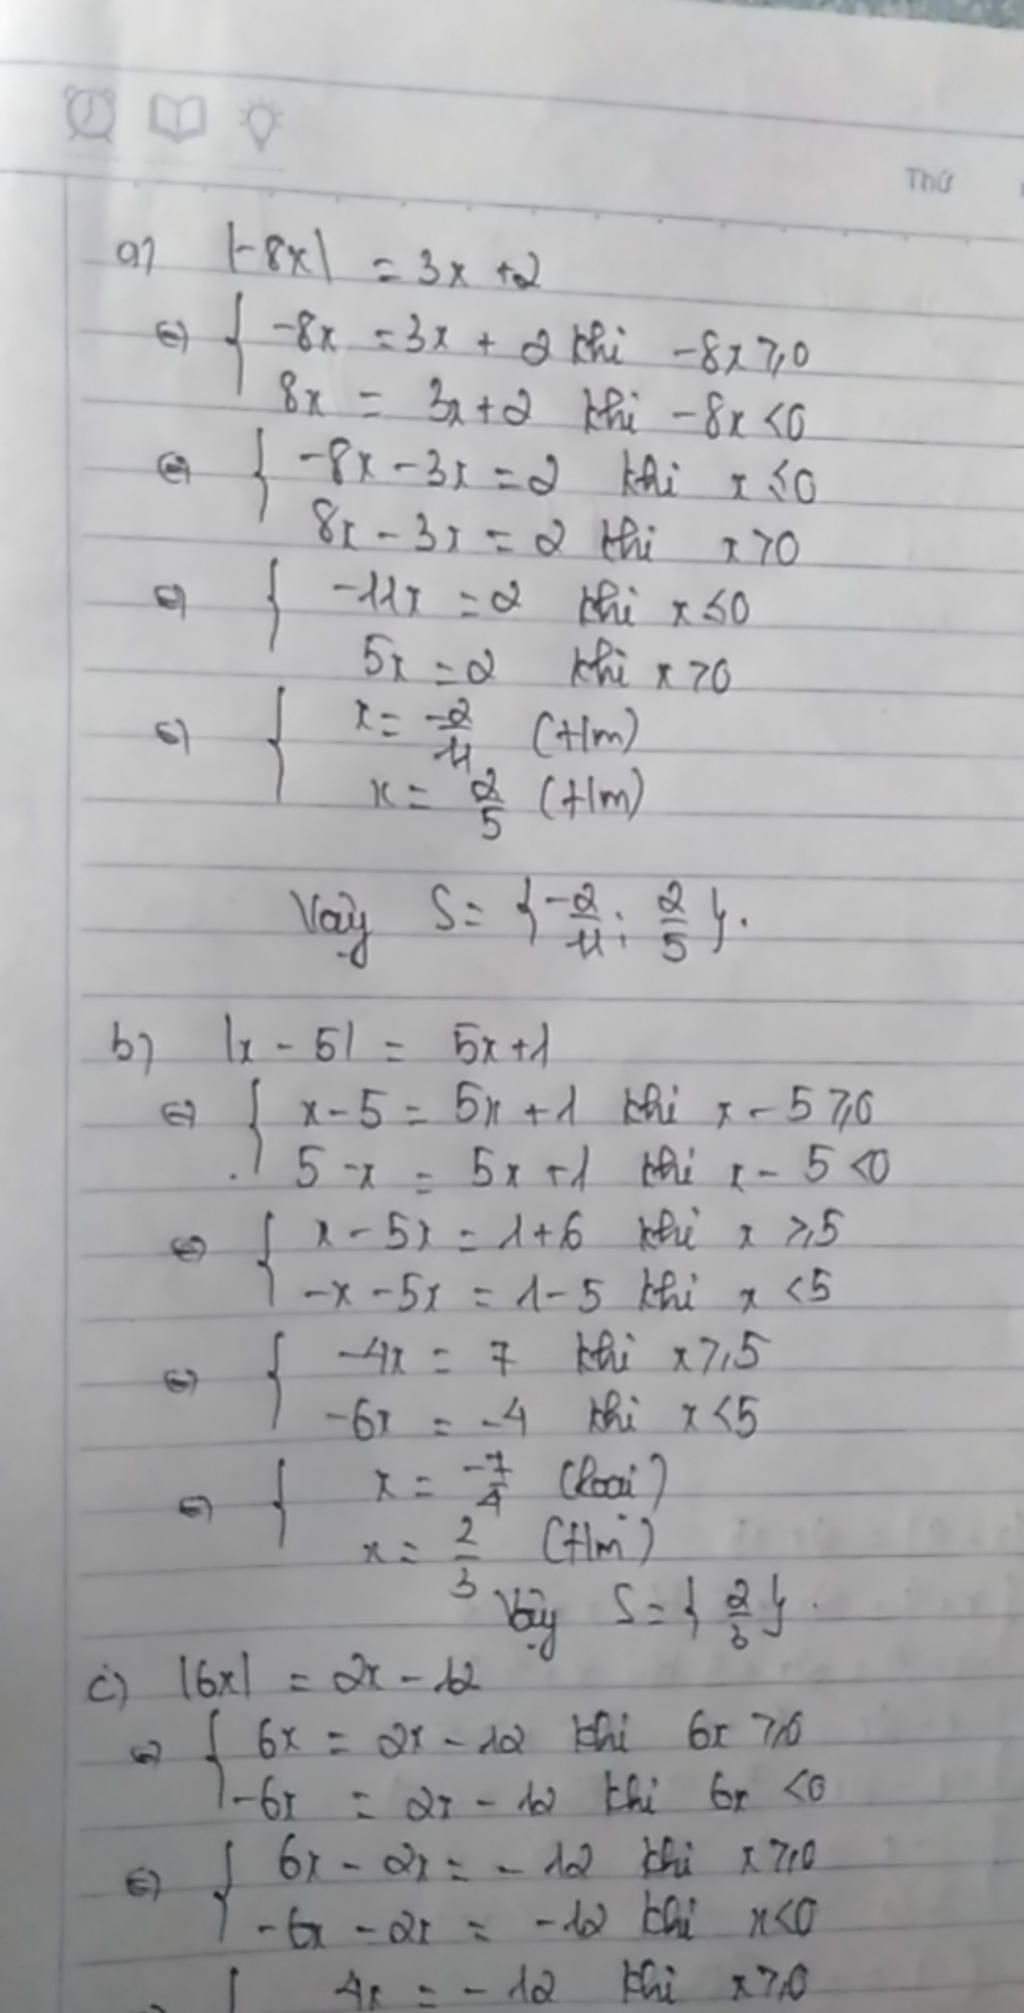 Thứ
a) |-8x| = 3x + 2
⇔ { -8x = 3x + 2 khi -8x ≥ 0
8x = 3x + 2 khi -8x < 0
⇔ { -8x - 3x = 2 khi x ≤ 0
8x - 3x = 2 khi x > 0
⇔ { -11x = 2 khi x ≤ 0
5x = 2 khi x > 0
⇔ { x = -2/11 (t/m)
x = 2/5 (t/m)
Vậy S = { -2/11 ; 2/5 }.
b) |x - 5| = 5x + 1
⇔ { x - 5 = 5x + 1 khi x - 5 ≥ 0
5 - x = 5x + 1 khi x - 5 < 0
⇔ { x - 5x = 1 + 6 khi x ≥ 5
-x - 5x = 1 - 5 khi x < 5
⇔ { -4x = 7 khi x ≥ 5
-6x = -4 khi x < 5
⇔ { x = -7/4 (loại)
x = 2/3 (t/m)
Vậy S = { 2/3 }.
c) |6x| = 2x - 12
⇔ { 6x = 2x - 12 khi 6x ≥ 0
-6x = 2x - 12 khi 6x < 0
⇔ { 6x - 2x = -12 khi x ≥ 0
-6x - 2x = -12 khi x < 0
{ 4x = -12 khi x ≥ 0